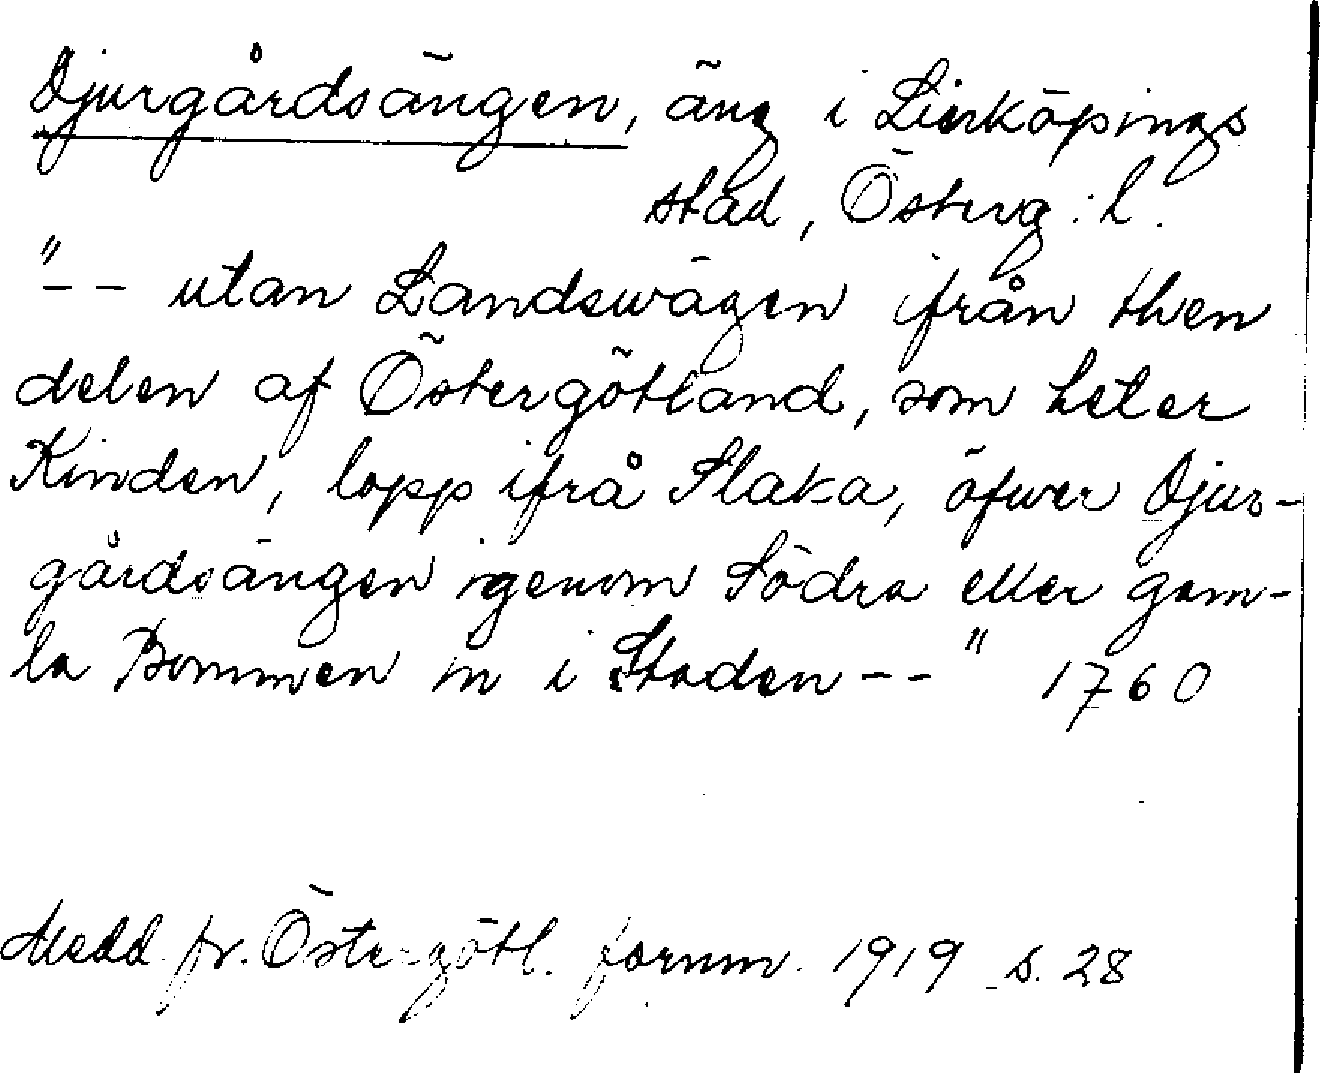 Djurgårdsängen, äng i Linköpings
stad, Österg:l.
"-- utan Landswägen ifrån then
delen af Östergötland, som heter
Kinden, lopp ifrå Slaka, öfwer Djur-
gårdsängen igenom Södra eller gam-
la Bommen in i Staden--" 1760
Medd. fr. Östergötl. fornm. 1919 s. 28